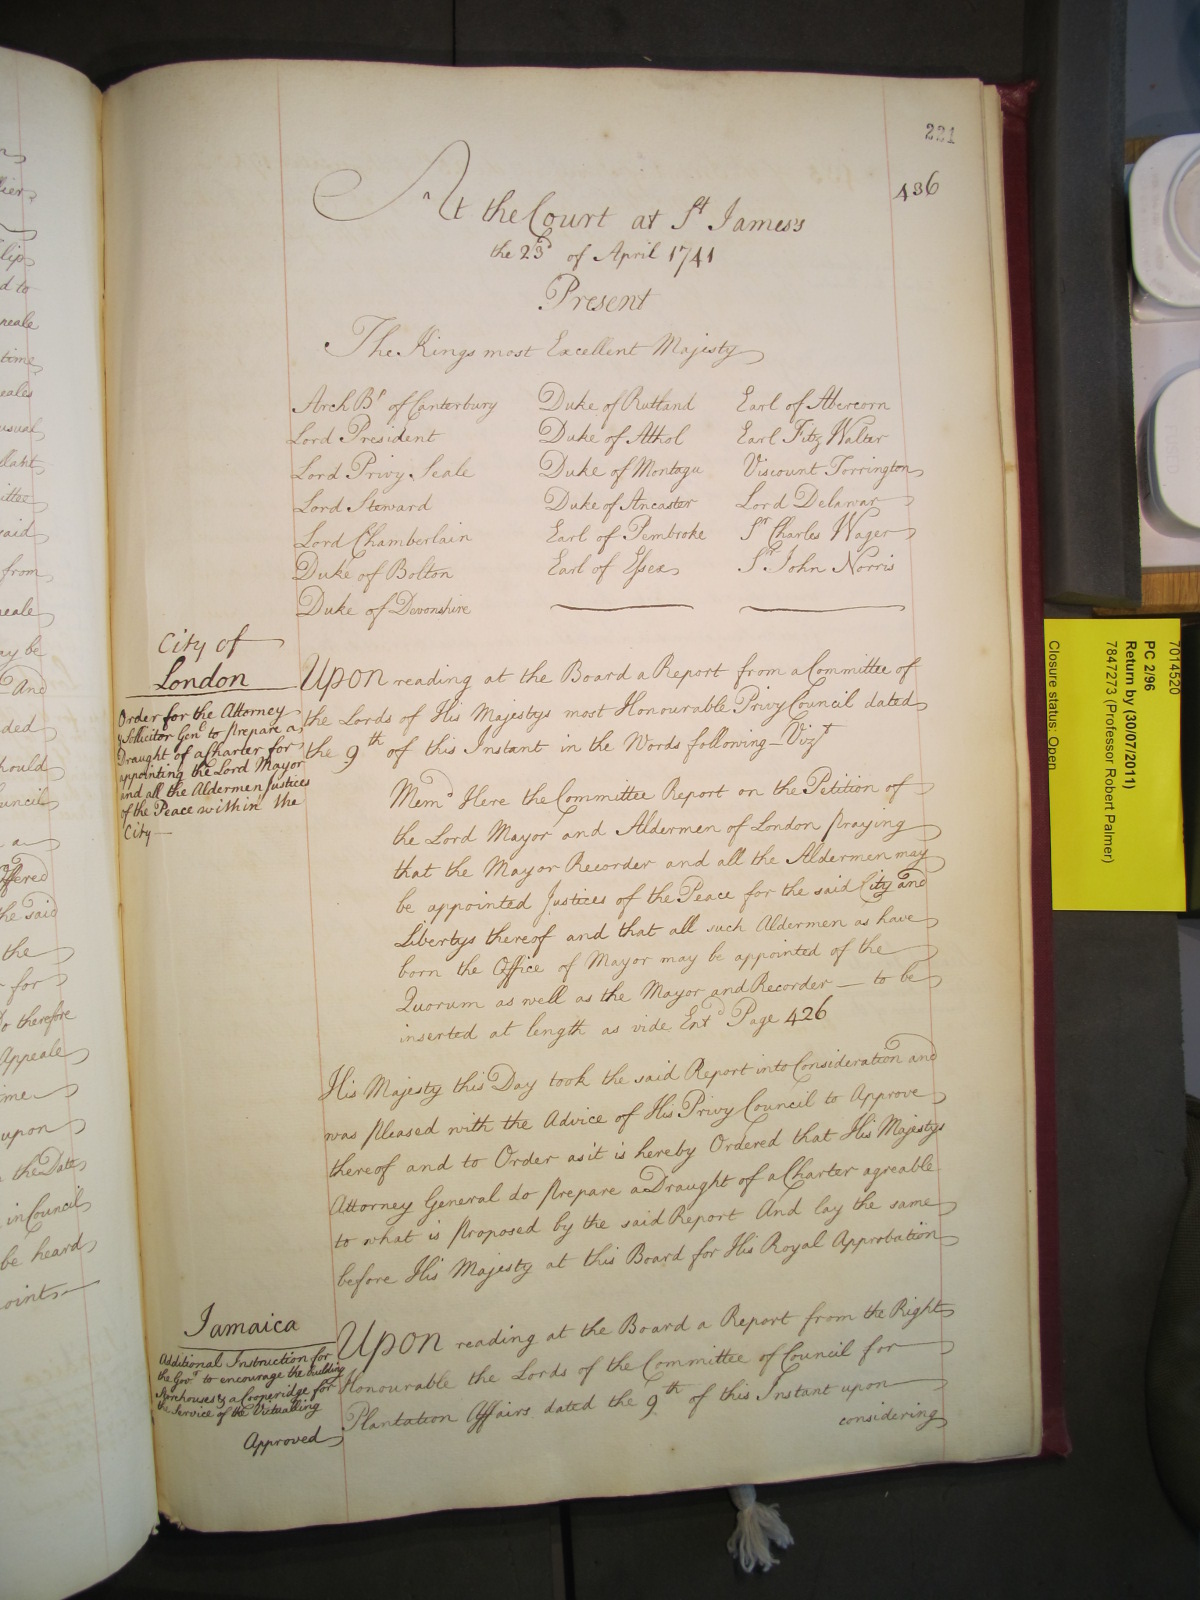 221
436
At the Court at St James's
the 23d of April 1741
Present
The Kings most Excellent Majesty
Arch Bp of Canterbury Duke of Rutland Earl of Abercorn
Lord President Duke of Athol Earl Fitz Walter
Lord Privy Seale Duke of Montagu Viscount Torrington
Lord Steward Duke of Ancaster Lord Delawar
Lord Chamberlain Earl of Pembroke Sr Charles Wager
Duke of Bolton Earl of Essex Sr John Norris
Duke of Devonshire
City of
London
Order for the Attorney
& Sollicitor Genl to prepare a
Draught of a Charter for
appointing the Lord Mayor
and all the Aldermen Justices
of the Peace within the
City
Upon reading at the Board a Report from a Committee of
the Lords of His Majestys most Honourable Privy Council dated
the 9th of this Instant in the Words following Vizt
Memd Here the Committee Report on the Petition of
the Lord Mayor and Aldermen of London praying
that the Mayor Recorder and all the Aldermen may
be appointed Justices of the Peace for the said City and
Libertys thereof and that all such Aldermen as have
born the Office of Mayor may be appointed of the
Quorum as well as the Mayor and Recorder — to be
inserted at length as vide Entd Page 426
His Majesty this Day took the said Report into Consideration and
was pleased with the Advice of His Privy Council to Approve
thereof and to Order as it is hereby Ordered that His Majestys
Attorney General do prepare a Draught of a Charter agreable
to what is proposed by the said Report And lay the same
before His Majesty at this Board for His Royal Approbation
Jamaica
Additional Instruction for
the Govr to encourage the building
Storehouses & a Cooperidge for
the Service of the Victualling
Approved
Upon reading at the Board a Report from the Right
Honourable the Lords of the Committee of Council for
Plantation Affairs dated the 9th of this Instant upon
considering
7014520
PC 2/96
Return by (30/07/2011)
7847273 (Professor Robert Palmer)
Closure status: Open
lip
d to
time
usual
said
from
eale
ay be
And
ded
hould
uncil
a
ffered
he said
the
for
o therefore
Appeale
ime
upon
the Date
in Council
be heard
oints